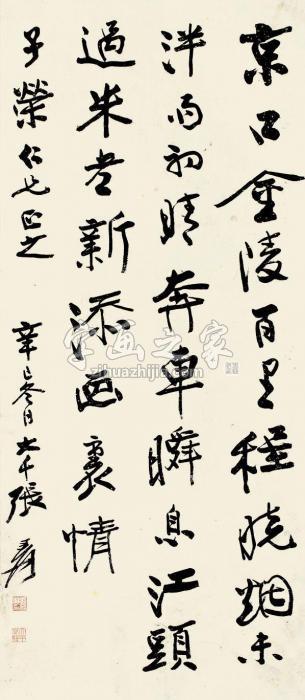 京口金陵百里程曉烟未
泮雨初晴奔車瞬息江頭
過米老新添画裏情
子榮仁兄正之 辛巳冬日 大千張爰
字画之家
zihuazhijia.com